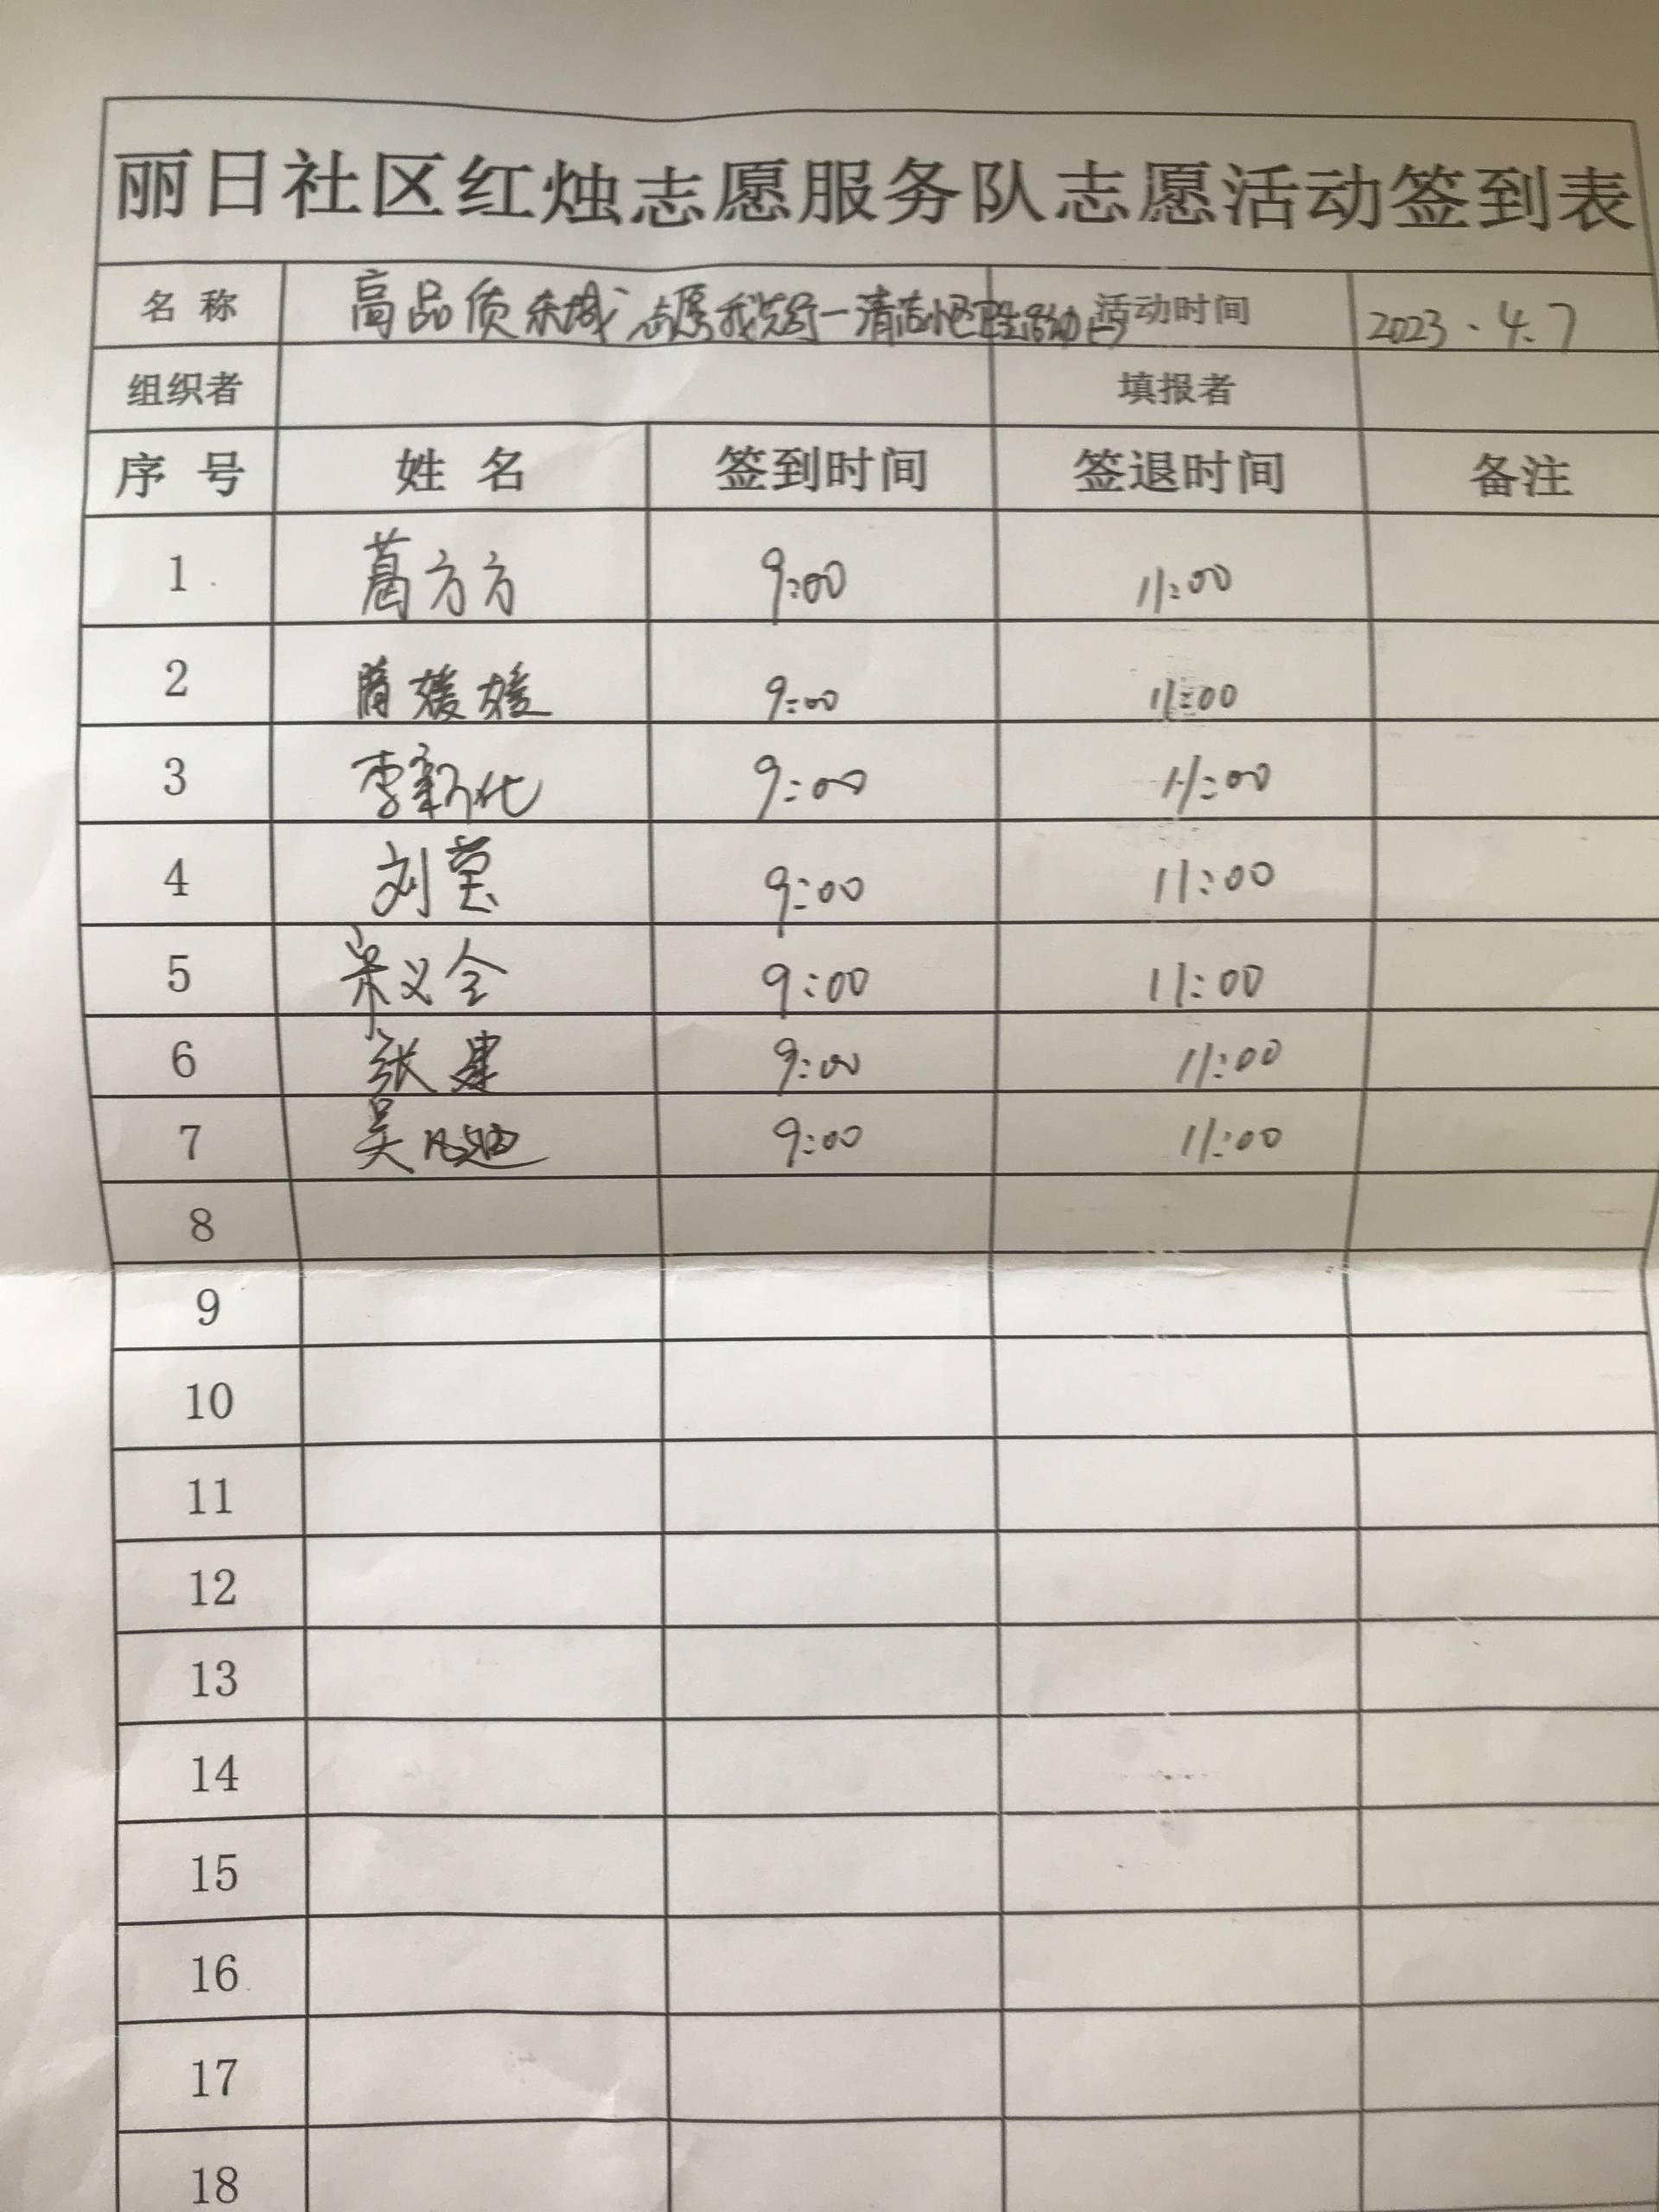 丽日社区红烛志愿服务队志愿活动签到表
名 称 高品质东城 志愿我先行一清洁小区卫生活动 活动时间 2023.4.7
组织者 填报者
序 号 姓 名 签到时间 签退时间 备注
1 葛方方 9:00 11:00
2 媛媛 9:00 11:00
3 李新化 9:00 11:00
4 刘莹 9:00 11:00
5 义全 9:00 11:00
6 张建 9:00 11:00
7 吴凡迪 9:00 11:00
8
9
10
11
12
13
14
15
16
17
18